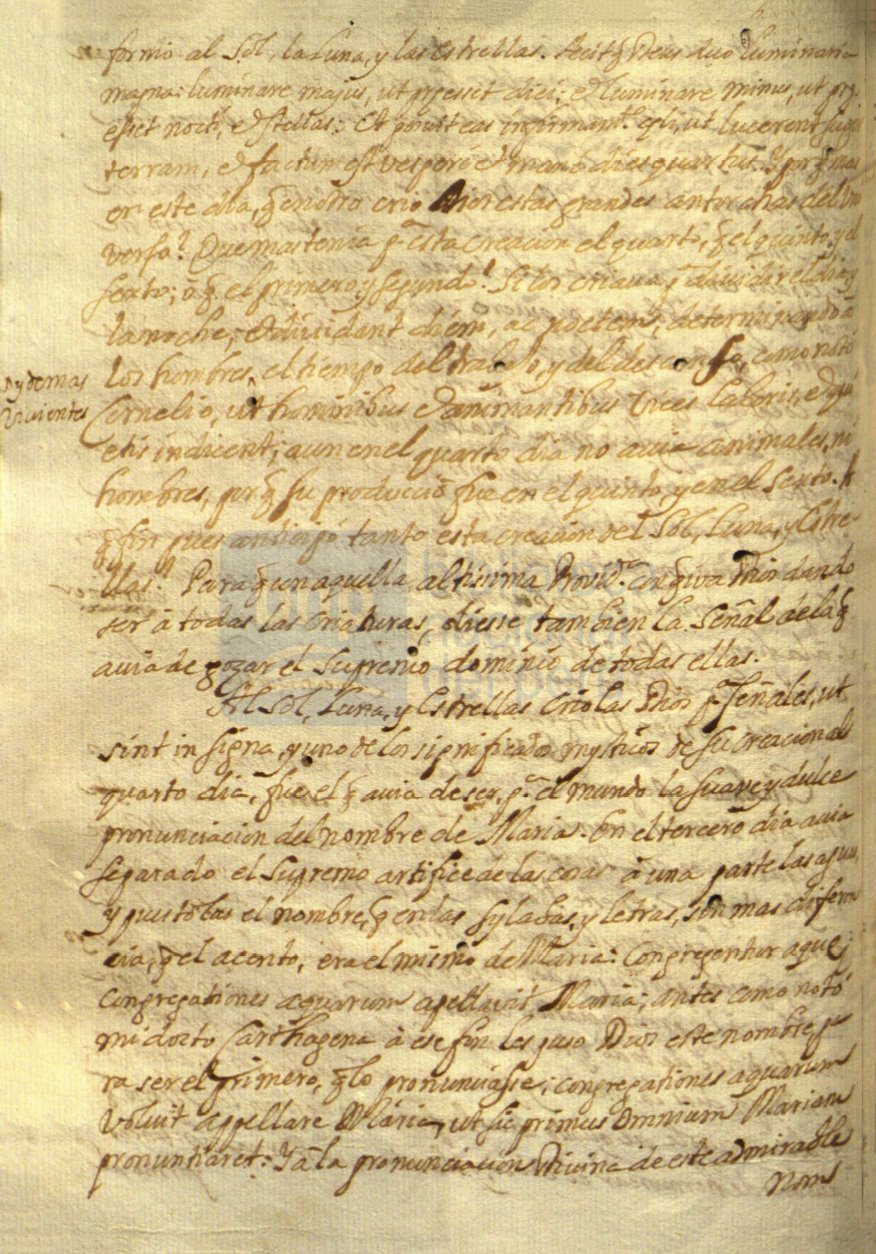 formò al Sol, la Luna, y las estrellas. Fecitq̃ Deus duo luminaria
magna: luminare majus, ut præesset diei; et luminare minus, ut præ
esset nocti, et stellas: Et posuit eas in firmamtº. cœli, ut lucerent super
terram, et factum est vesperè et manè dies quartus. Y porq̃ mas
en este dia, q̃ en otro criò Dios estas grandes antorchas del Uni
verso? Que mas tenia pª esta creacion el quarto, q̃ el quinto, y el
sexto; ò q̃ el primero, y segundo? Si los criava pª dividir el dia, y
la noche, et dividant diem, ac noctem, determinando à
los hombres, el tiempo del trabajo, y del descanso, como notò
y demas
vivientes
Cornelio, ut hominibus et animantibus vices laboris, et qui
etis indicent; aun en el quarto dia no avia animales, ni
hombres, porq̃ su produccio fue en el quinto, y en el sexto. A
q̃ fin pues anticipó tanto esta creacion del Sol, Luna, y Estre-
llas? Para q̃ en aquella altissima Provid.ª con q̃ iva Dios dando
ser à todas las criaturas, diesse tambien la señal de la q̃
avia de gozar el supremo dominio de todas ellas.
Al Sol, Luna, y Estrellas criolas Dios pª señales, ut
sint in signa, y uno de los significados mysticos de su creacion al
quarto dia, fue el q̃ avia de ser, pª el mundo la suave y dulce
pronunciacion del nombre de Maria. En el tercero dia avia
separado el supremo artifice de las cosas à una parte las aguas,
y pusoles el nombre, q̃ en las sylabas, y letras, sin mas diferen
cia, q̃ el acento, era el mismo de Maria: Congregentur aquæ;
congregationes aquarum apellavit Maria; antes como notò
mi docto Carthagena à ese fin les puso Dios este nombre pª
ra ser el primero, q̃ lo pronunciasse; congregationes aquarum
voluit appellare Mária, ut sic primus omnium Mariam
pronuntiaret: Y à la pronunciacion Divina de este admirable
nom